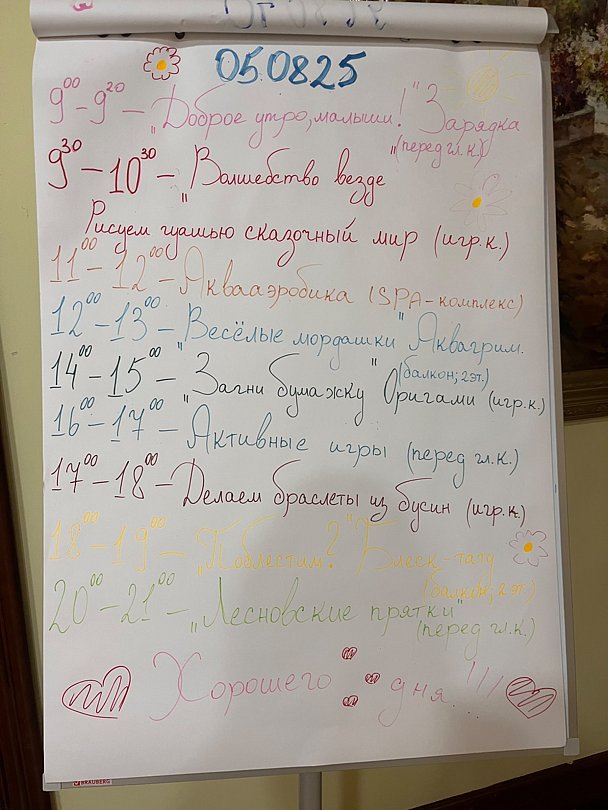 050825
9⁰⁰ - 9²⁰ - "Доброе утро, малыши!" Зарядка
(перед гл.к.)
9³⁰ - 10³⁰ - "Волшебство везде"
Рисуем гуашью сказочный мир (игр.к.)
11⁰⁰ - 12⁰⁰ - Аквааэробика (SPA-комплекс)
12⁰⁰ - 13⁰⁰ - "Весёлые мордашки" Аквагрим.
(балкон; 2эт.)
14⁰⁰ - 15⁰⁰ - "Загни бумажку" Оригами (игр.к.)
16⁰⁰ - 17⁰⁰ - Активные игры (перед гл.к.)
17⁰⁰ - 18⁰⁰ - Делаем браслеты из бусин (игр.к.)
18⁰⁰ - 19⁰⁰ - "Поблестим?" Блеск-тату
(балкон; 2 эт.)
20⁰⁰ - 21⁰⁰ - "Лесновские прятки"
(перед гл.к.)
Хорошего дня...!!!
BRAUBERG